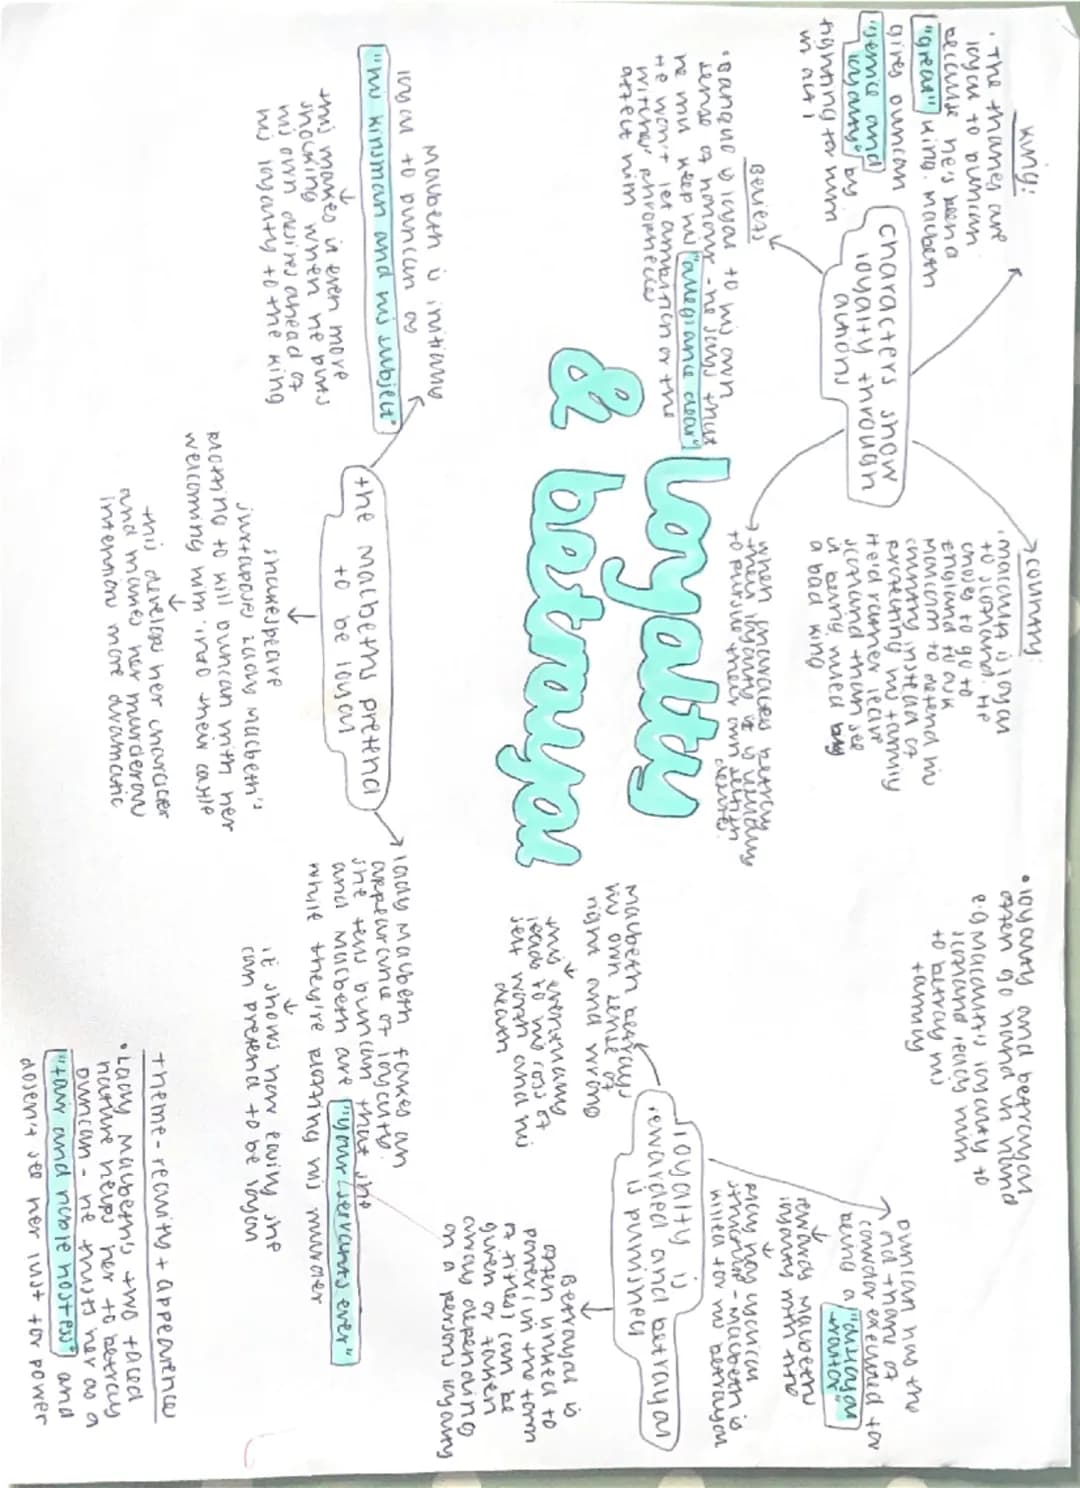 Loyalty
& betrayal
characters show
loyalty through
actions
King:
• The thanes are
loyal to Duncan
because he's been a
"great" king. Macbeth
gives Duncan
"service and
loyalty" by
fighting for him
in act 1
Beliefs
• Banquo is loyal to his own
sense of honour - he says that
he mu keep his "allegiance clear"
He won't let ambition or the
witches' phrophecies
affect him
country:
• Macduff is loyal
to Scotland. He
chose to go to
England to ask
Malcolm to defend his
country instead of
protecting his family
He'd rather leave
Scotland than see
it being ruled by
a bad king
when characters betray
their loyalty it is usually
to pursue their own selfish
desires
• loyalty and betrayal
often go hand in hand
e.g Macduff's loyalty to
Scotland leads him
to betray his
family
loyalty is
rewarded and betrayal
is punished
Duncan has the
old thane of
cawdor executed for
being a "disloyal
traitor"
rewards Macbeth
loyalty with the
play has cyclical
structure - Macbeth is
killed for his betrayal
Macbeth betrays
his own sense of
right and wrong
this eventually
leads to his loss of
self worth and his
death
Betrayal is
often linked to
power (in the form
of titles) can be
given or taken
away depending
on a persons loyalty
the Macbeths pretend
to be loyal
Macbeth is initially
loyal to Duncan as
"his kinsman and his subject"
this makes it even more
shocking when he puts
his own desires ahead of
his loyalty to the king
shakespeare
juxtaposes Lady Macbeth's
plotting to kill Duncan with her
welcoming him into their castle
this develops her character
and makes her murderous
intention more dramatic
lady Macbeth fakes an
appearance of loyalty.
she tells Duncan that she
and Macbeth are "your servants ever"
while they're plotting his murder
it shows how easily she
can pretend to be loyal
theme - reality + appearence
• Lady Macbeth's two faced
nature helps her to betray
Duncan - he trusts her as a
"fair and noble hostess" and
dosen't see her lust for power